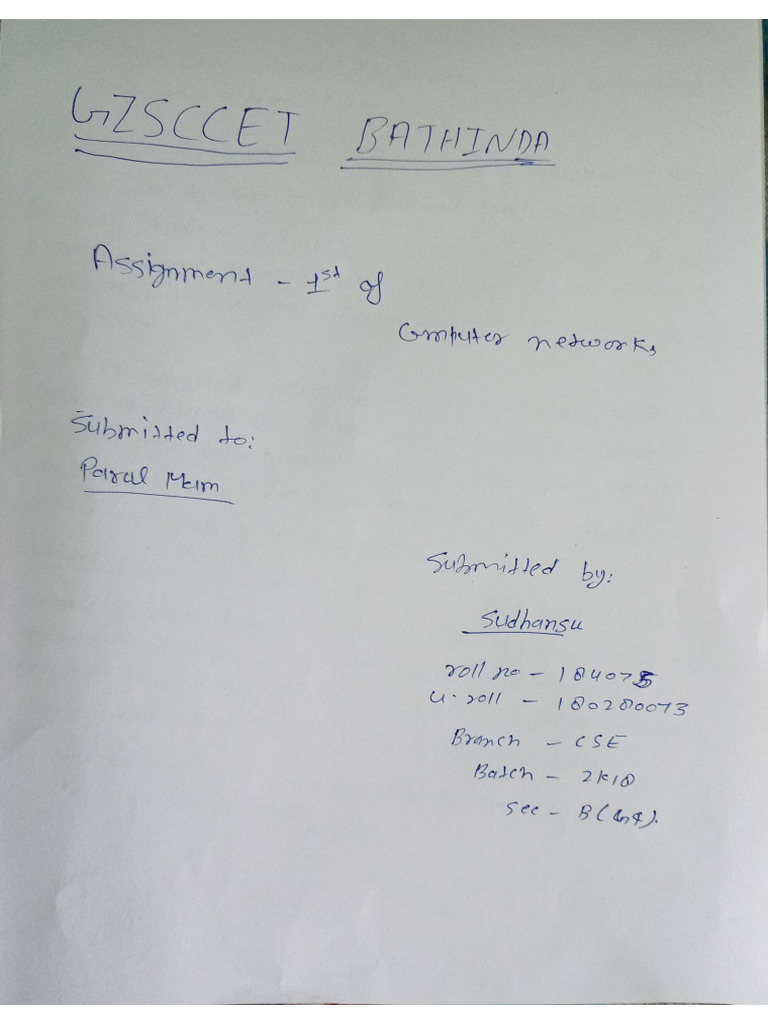 GZSCCET BATHINDA
Assignment - 1st of
Computer networks
Submitted to:
Parul Mam
Submitted by:
Sudhansu
roll no - 184075
U. roll - 180280073
Branch - CSE
Batch - 2K18
Sec - B